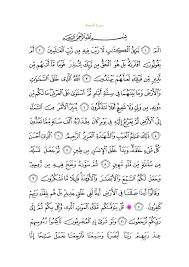 سورة السجدة
بِسْمِ اللَّهِ الرَّحْمَٰنِ الرَّحِيمِ
الٓمٓ ١ تَنزِيلُ الْكِتَٰبِ لَا رَيْبَ فِيهِ مِن رَّبِّ الْعَٰلَمِينَ ٢
أَمْ يَقُولُونَ افْتَرَىٰهُ بَلْ هُوَ الْحَقُّ مِن رَّبِّكَ لِتُنذِرَ قَوْمًا مَّا أَتَىٰهُم
مِّن نَّذِيرٍ مِّن قَبْلِكَ لَعَلَّهُمْ يَهْتَدُونَ ٣ اللَّهُ الَّذِي خَلَقَ السَّمَٰوَٰتِ
وَالْأَرْضَ وَمَا بَيْنَهُمَا فِي سِتَّةِ أَيَّامٍ ثُمَّ اسْتَوَىٰ عَلَى الْعَرْشِ مَا لَكُم
مِّن دُونِهِ مِن وَلِيٍّ وَلَا شَفِيعٍ أَفَلَا تَتَذَكَّرُونَ ٤ يُدَبِّرُ الْأَمْرَ مِنَ السَّمَاءِ
إِلَى الْأَرْضِ ثُمَّ يَعْرُجُ إِلَيْهِ فِي يَوْمٍ كَانَ مِقْدَارُهُ أَلْفَ سَنَةٍ مِّمَّا
تَعُدُّونَ ٥ ذَٰلِكَ عَٰلِمُ الْغَيْبِ وَالشَّهَٰدَةِ الْعَزِيزُ الرَّحِيمُ ٦ الَّذِي
أَحْسَنَ كُلَّ شَيْءٍ خَلَقَهُ وَبَدَأَ خَلْقَ الْإِنسَٰنِ مِن طِينٍ ٧ ثُمَّ جَعَلَ
نَسْلَهُ مِن سُلَٰلَةٍ مِّن مَّاءٍ مَّهِينٍ ٨ ثُمَّ سَوَّىٰهُ وَنَفَخَ فِيهِ مِن رُّوحِهِ وَجَعَلَ
لَكُمُ السَّمْعَ وَالْأَبْصَٰرَ وَالْأَفْـِٔدَةَ قَلِيلًا مَّا تَشْكُرُونَ ٩
وَقَالُوا أَءِذَا ضَلَلْنَا فِي الْأَرْضِ أَءِنَّا لَفِي خَلْقٍ جَدِيدٍ بَلْ هُم بِلِقَاءِ رَبِّهِمْ
كَٰفِرُونَ ١٠ قُلْ يَتَوَفَّىٰكُم مَّلَكُ الْمَوْتِ الَّذِي وُكِّلَ بِكُمْ ثُمَّ إِلَىٰ
رَبِّكُمْ تُرْجَعُونَ ١١ وَلَوْ تَرَىٰ إِذِ الْمُجْرِمُونَ نَاكِسُوا رُءُوسِهِمْ
عِندَ رَبِّهِمْ رَبَّنَا أَبْصَرْنَا وَسَمِعْنَا فَارْجِعْنَا نَعْمَلْ صَٰلِحًا إِنَّا